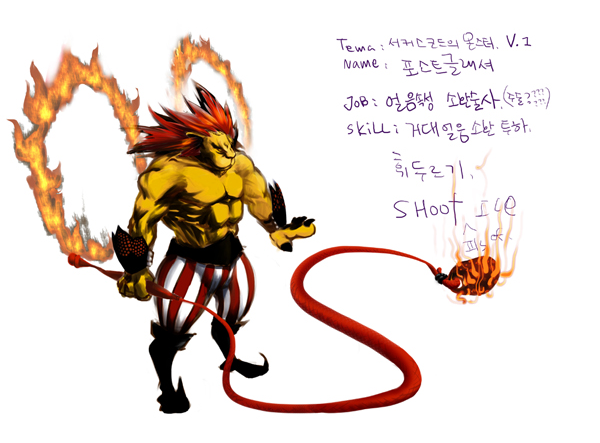 Tema: 서커스코드의 몬스터. V.1
Name: 포스트글래셔
JOB: 얼음속성 소환술사.(주술?????)
SKill: 거대얼음 소환 투하.
휘두르기.
SHOOT ICE